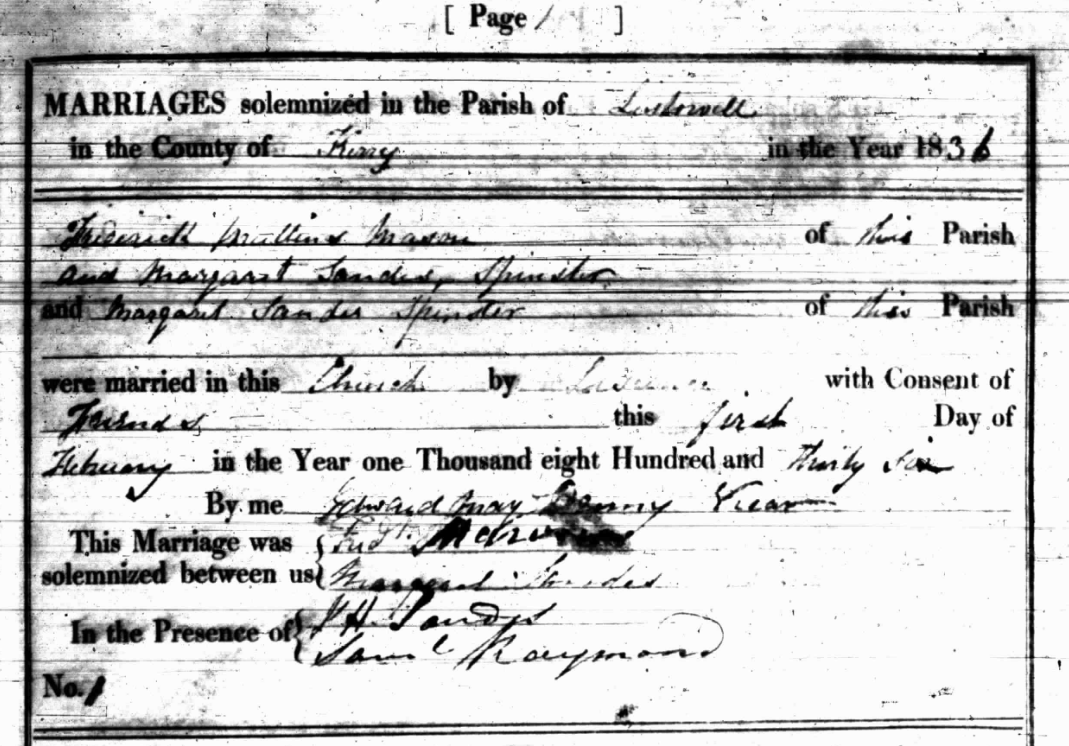 [ Page 1 ]
MARRIAGES solemnized in the Parish of Listowell
in the County of Kerry in the Year 1836
Frederick Mullins Mason of this Parish
and Margaret Sandes, Spinster
and Margaret Sandes Spinster of this Parish
were married in this Church by Licence with Consent of
Friends this first Day of
February in the Year one Thousand eight Hundred and thirty six
By me Edward May Denny Vicar
This Marriage was { Fredk.
solemnized between us { Margaret Sandes
In the Presence of { Sandes
Saml Raymond
No. 1